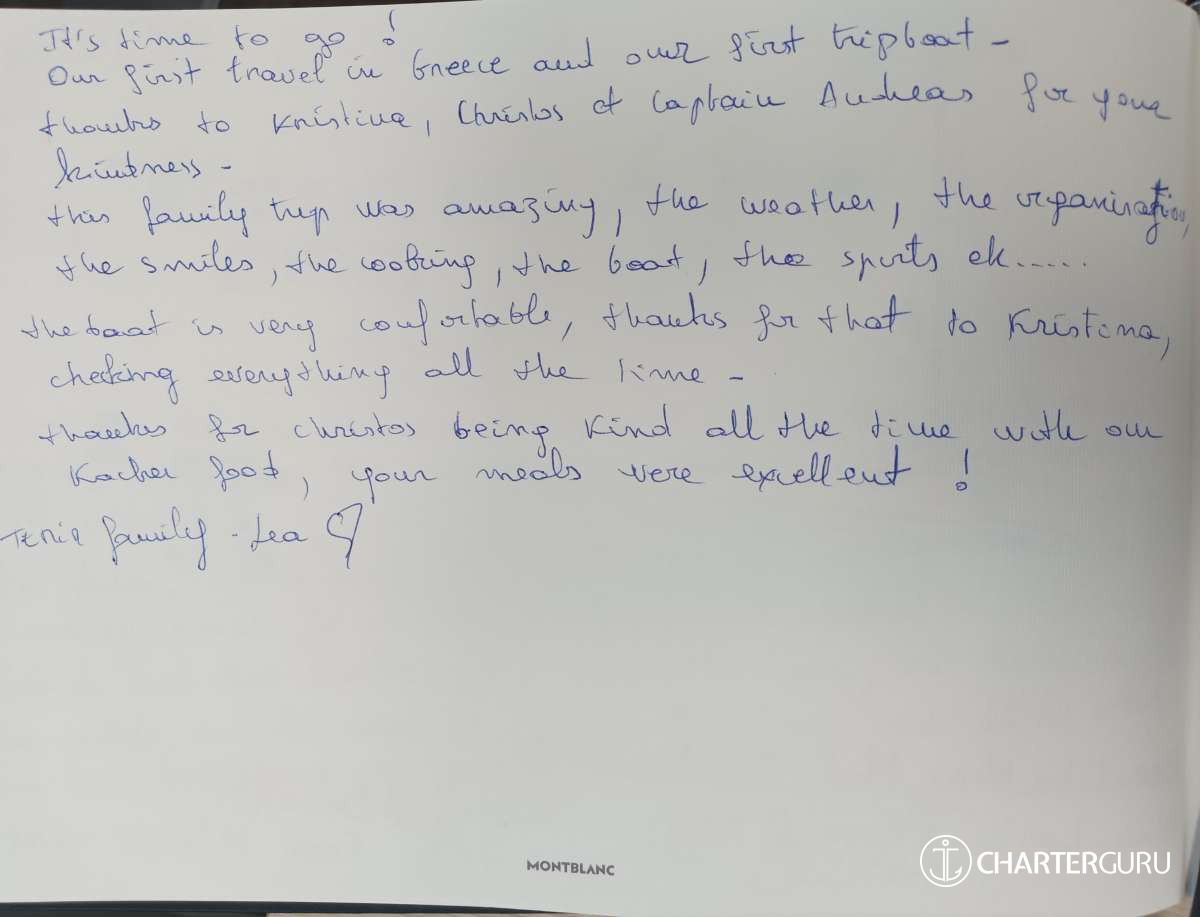 It's time to go !
Our first travel in Greece and our first tripboat -
thanks to Kristina, Christos et Captain Andreas for your
kindness -
this family trip was amazing, the weather, the organisation,
the smiles, the cooking, the boat, the sports etc.....
the boat is very confortable, thanks for that to Kristina,
checking everything all the time -
thanks for christos being kind all the time with our
Kacher food, your meals were excellent !
family - Lea
MONTBLANC
CHARTERGURU